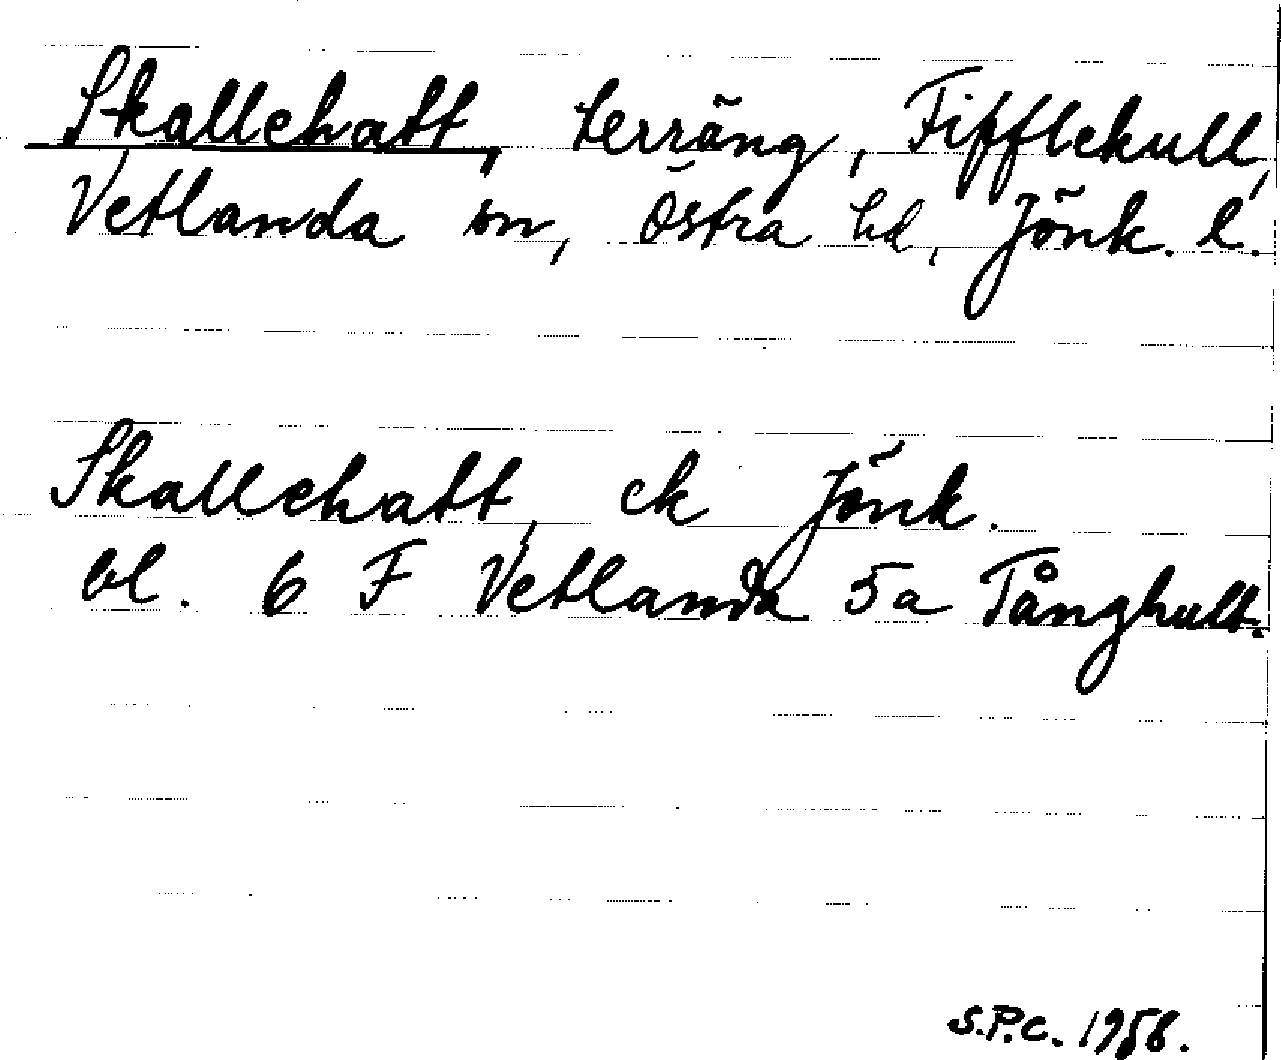 Skallehatt, terräng, Fifflekull,
Vetlanda sn, Östra hd, Jönk. l.
Skallehatt, ek Jönk.
bl. 6 F Vetlanda 5a Tånghult.
S.P.C. 1958.